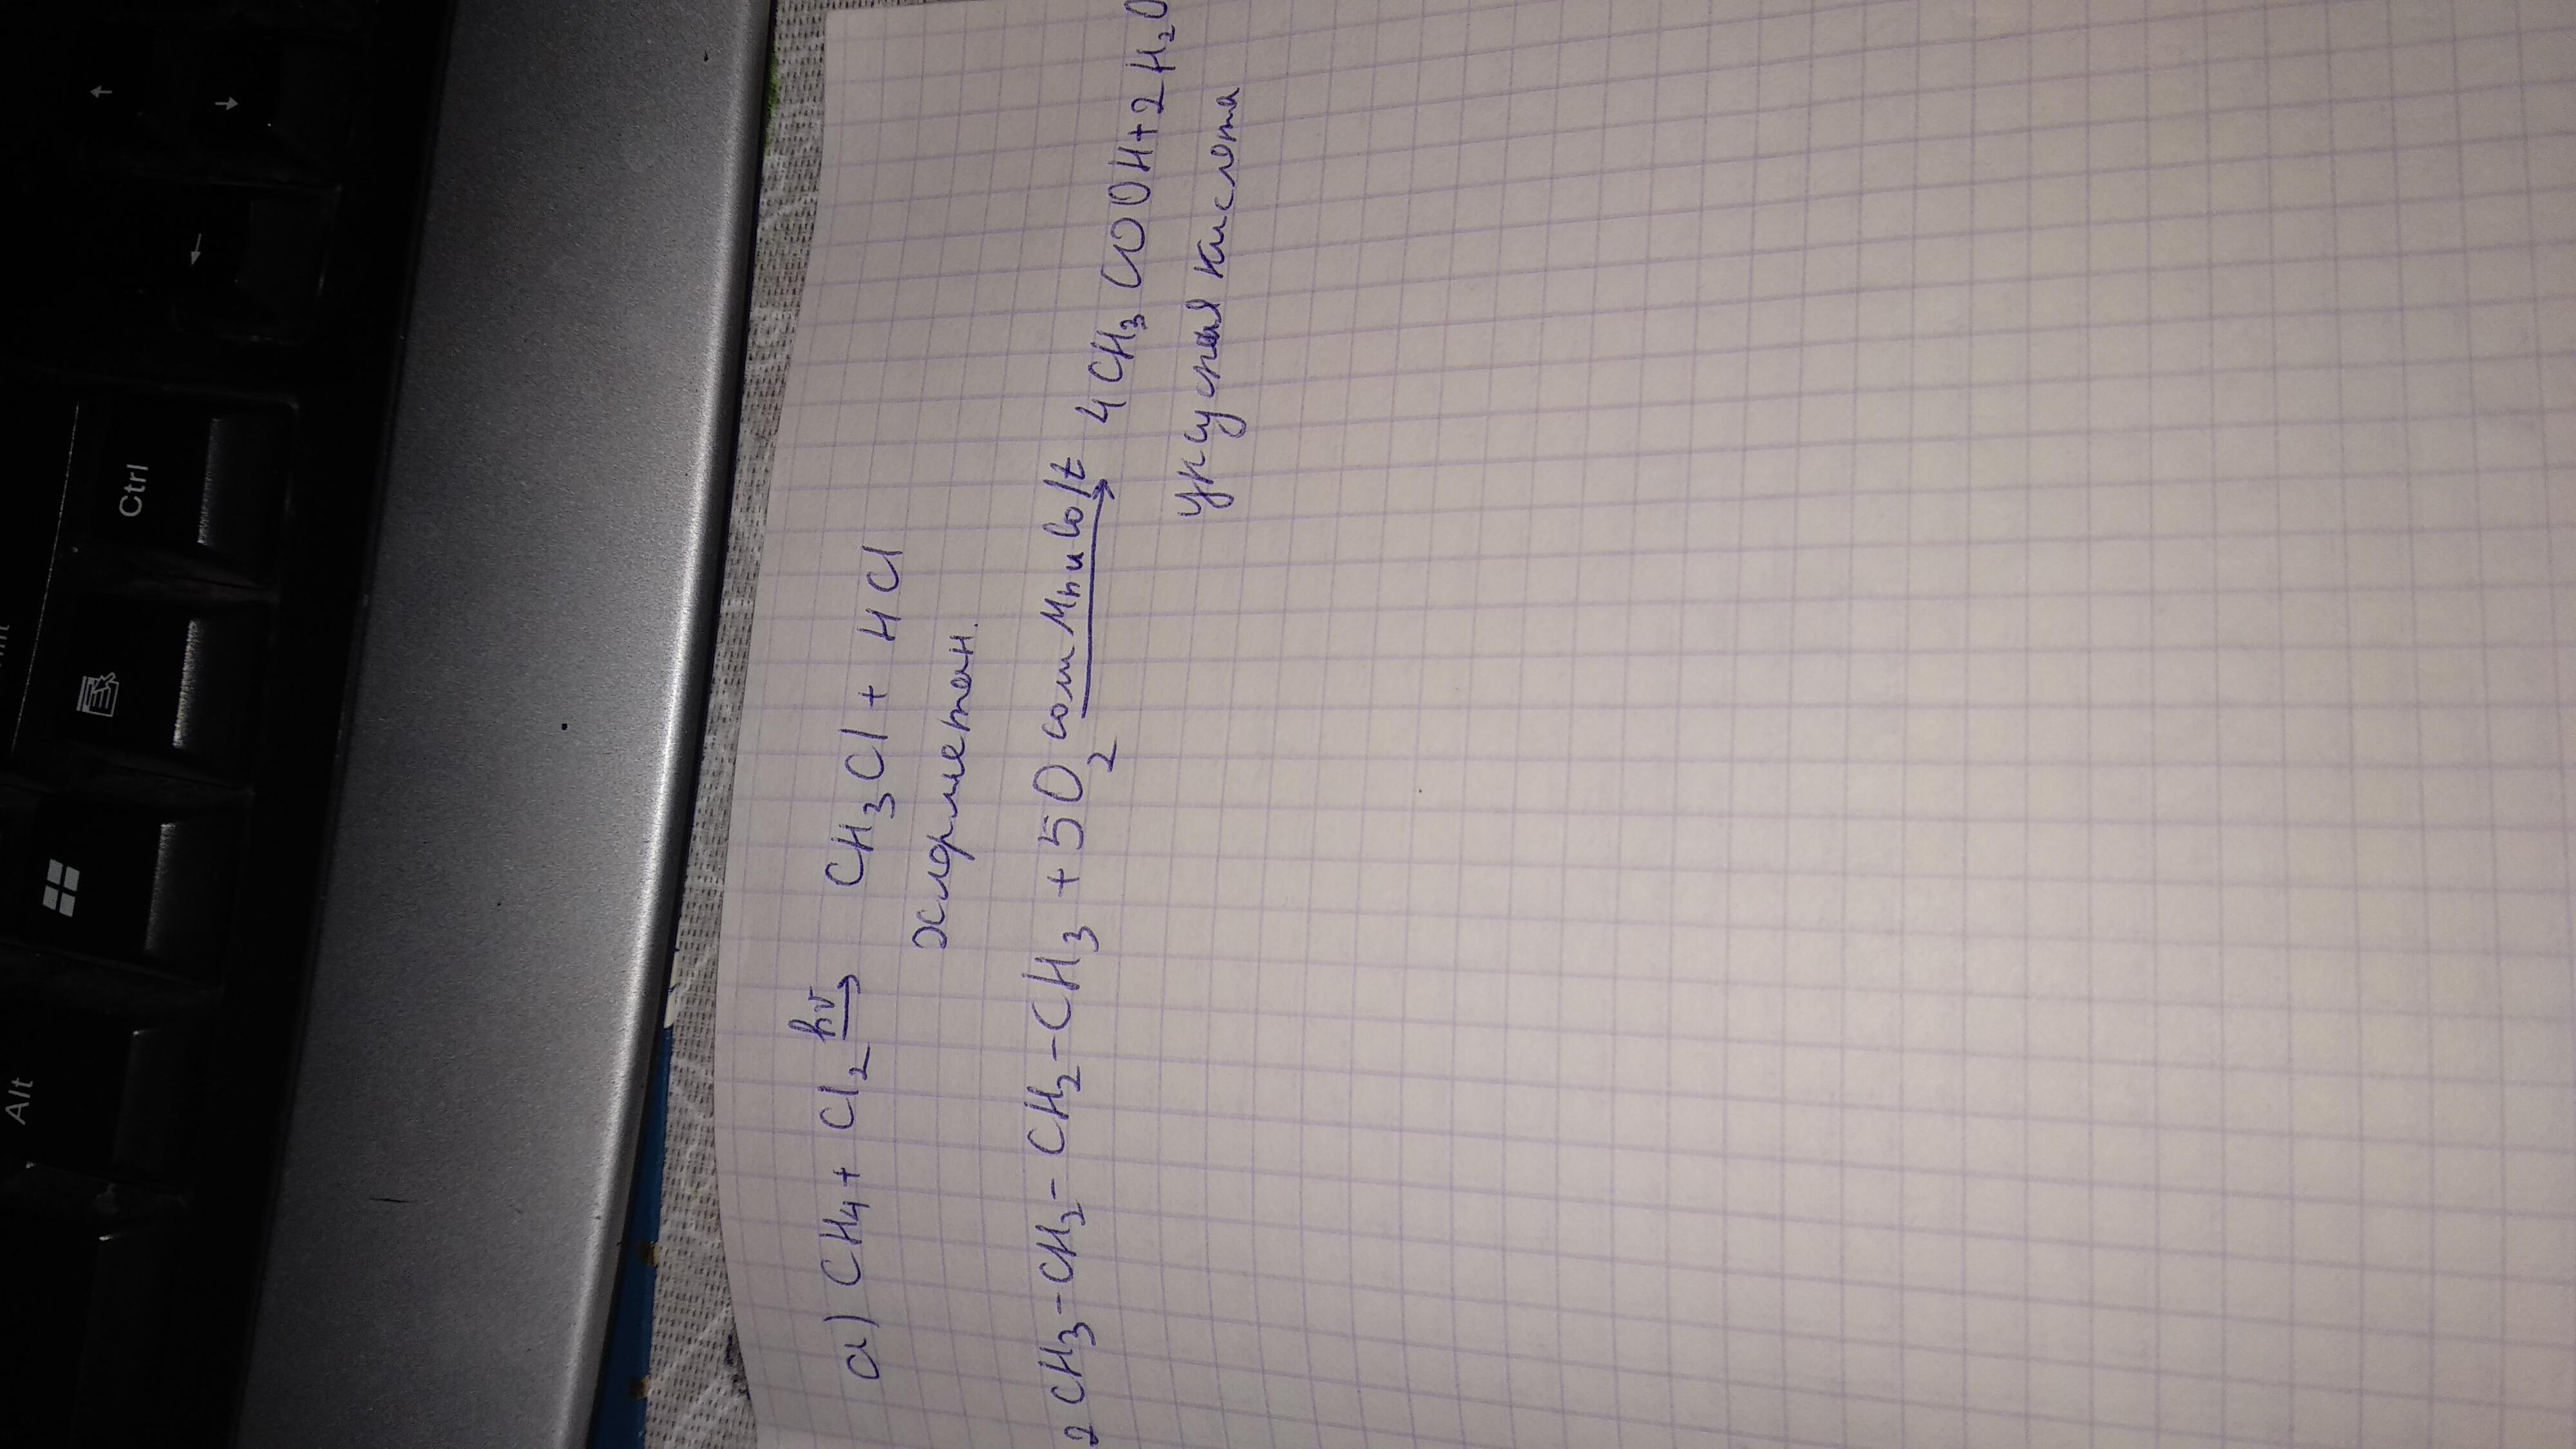 Alt
Ctrl
a) CH₄ + Cl₂ hν→ CH₃Cl + HCl
хлорметан.
2 CH₃-CH₂-CH₂-CH₃ + 5O₂ соли Mn и Co/t→ 4CH₃COOH + 2H₂O
уксусная кислота